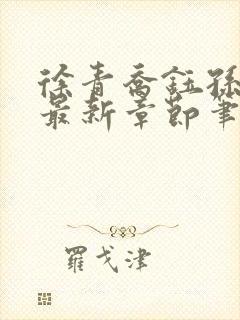 徐青喬鈺孫
最新章節筆
羅戈津